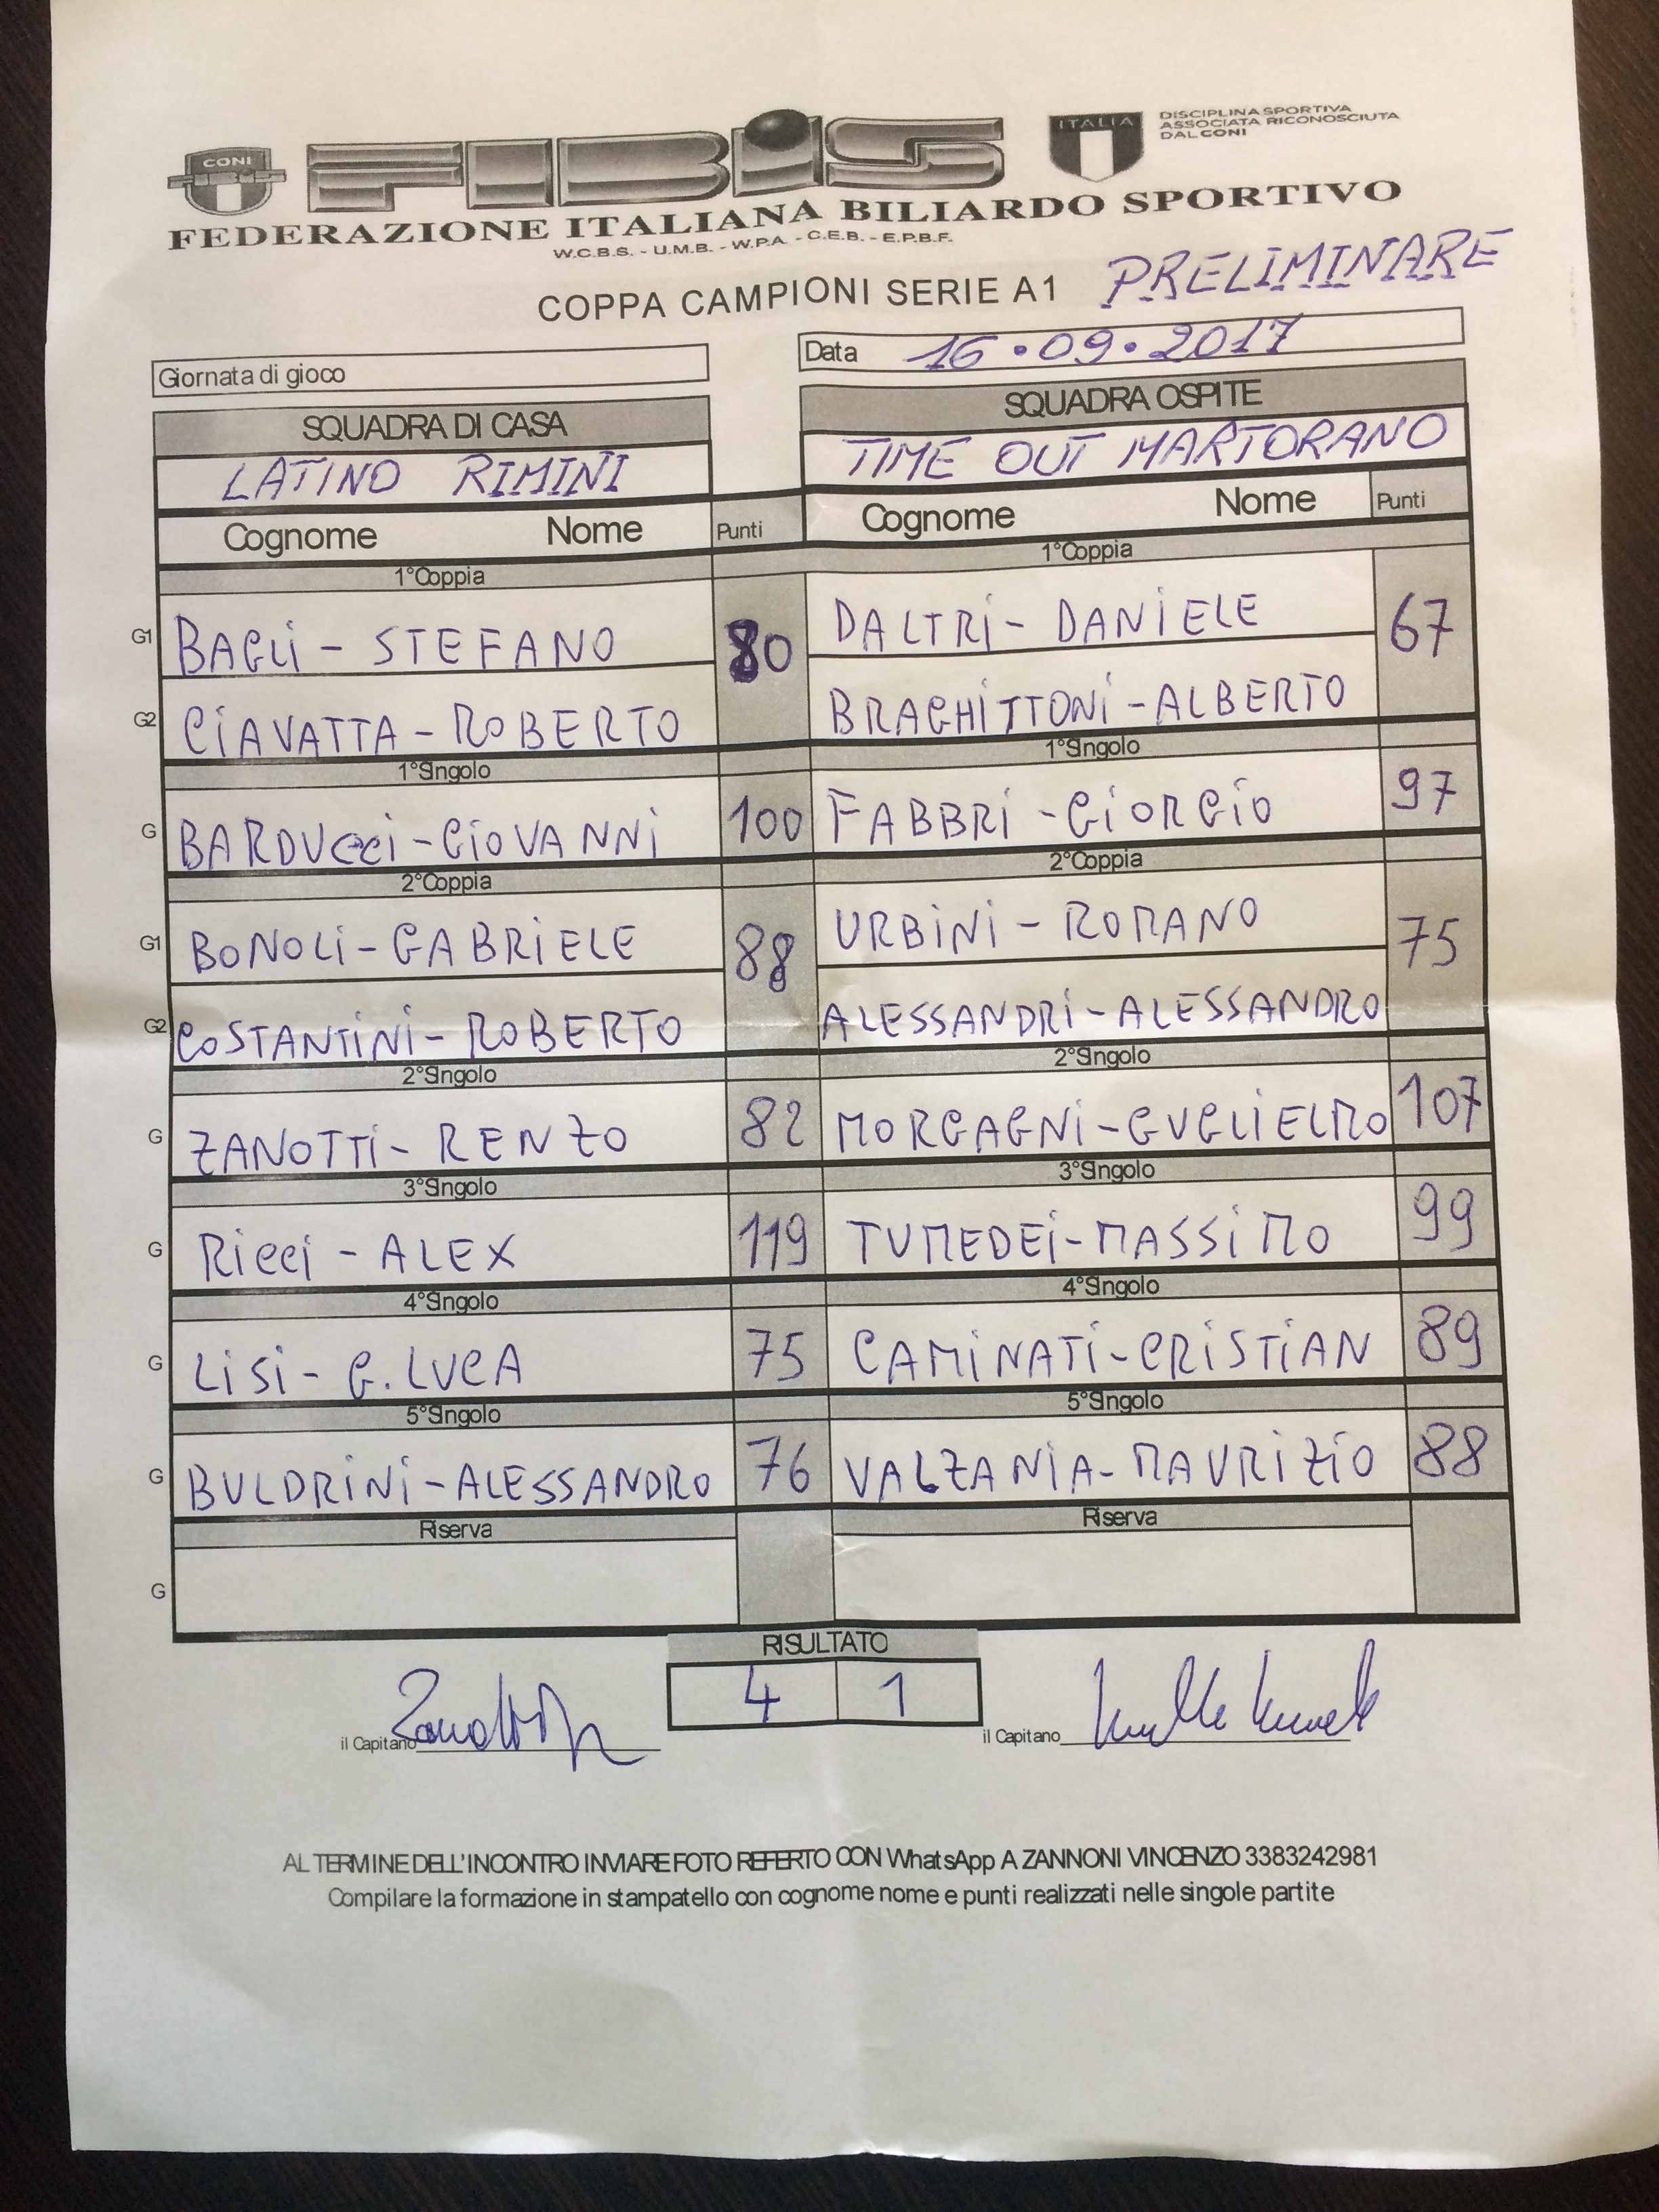 CONI
FIBiS
ITALIA
DISCIPLINA SPORTIVA
ASSOCIATA RICONOSCIUTA
DAL CONI
FEDERAZIONE ITALIANA BILIARDO SPORTIVO
W.C.B.S. - U.M.B. - W.P.A. - C.E.B. - E.P.B.F.
COPPA CAMPIONI SERIE A1 PRELIMINARE
Giornata di gioco
Data 16.09.2017
SQUADRA DI CASA SQUADRA OSPITE
LATINO RIMINI TIME OUT MARTORANO
Cognome Nome Punti Cognome Nome Punti
1°Coppia 1°Coppia
G1 BAGLi - STEFANO 80 DALTRi - DANiELE 67
G2 CiAVATTA - ROBERTO BRAGHiTTONi - ALBERTO
1°Singolo 1°Singolo
G BARDUcci - GiOVANNi 100 FABBRi - GiORGiO 97
2°Coppia 2°Coppia
G1 BONOLi - GABRiELE 88 URBiNi - ROMANO 75
G2 COSTANTiNi - ROBERTO ALESSANDRi - ALESSANDRO
2°Singolo 2°Singolo
G ZANOTTi - RENZO 82 MORGAGNi - GUGLiELMO 107
3°Singolo 3°Singolo
G Ricci - ALEX 119 TUMEDEi - MASSiMO 99
4°Singolo 4°Singolo
G LiSi - G. LUCA 75 CAMiNATi - CRiSTiAN 89
5°Singolo 5°Singolo
G BULDRiNi - ALESSANDRO 76 VALZANiA - MAURiZiO 88
Riserva Riserva
G
RISULTATO
4 1
il Capitano il Capitano
AL TERMINE DELL'INCONTRO INVIARE FOTO REFERTO CON WhatsApp A ZANNONI VINCENZO 3383242981
Compilare la formazione in stampatello con cognome nome e punti realizzati nelle singole partite